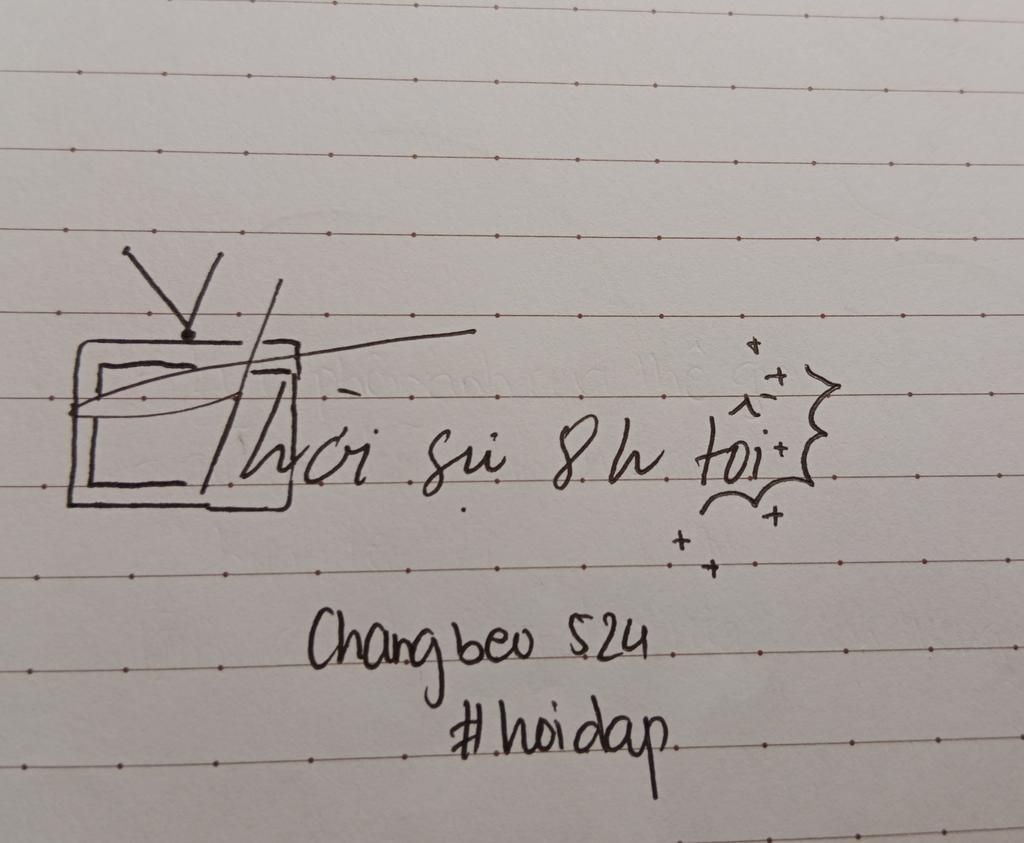 Thời sự 8h tối
Changbeo 524
#hoidap